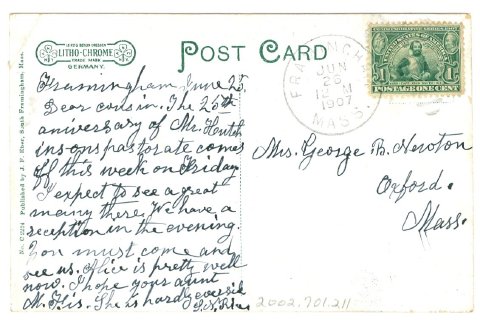 LEIPZIG BERLIN DRESDEN
LITHO-CHROME
TRADE MARK
GERMANY.
POST CARD
FRAMINGHAM
JUN
25
12 M
1907
MASS.
POSTAGE ONE CENT
1
No. C 2224 Published by J. F. Eber, South Framingham, Mass.
Framingham June 25
Dear cousin. The 25th
aniversary of Mr. Hutch
insons pastorate comes
off this week on Friday
I expect to see a great
many there. We have a
reception in the evening.
You must come and
see us. Alice is pretty well
now. I hope your aunt
M. F. is. She is hardly
Mrs. George B. Newton
Oxford.
Mass.
2002.701.211